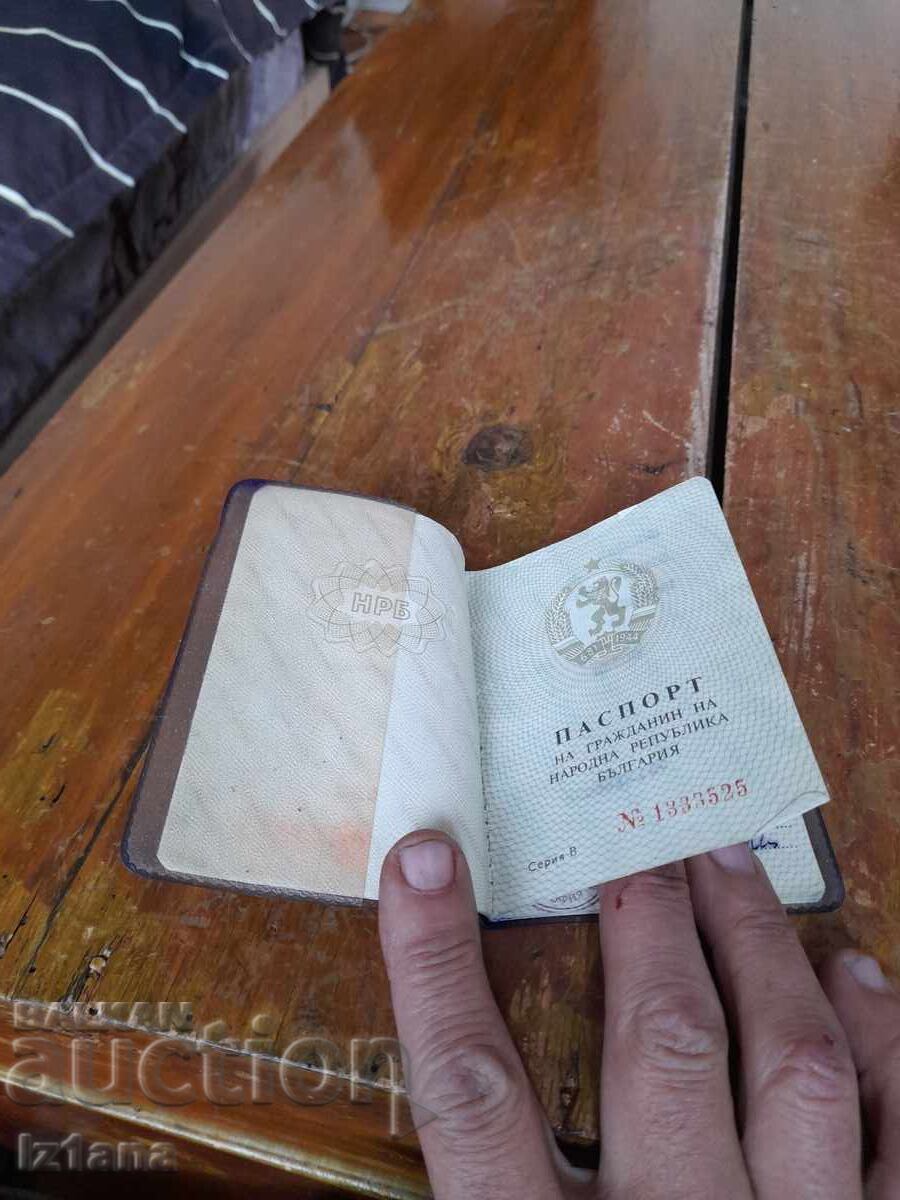 НРБ
681 1944
ПАСПОРТ
НА ГРАЖДАНИН НА
НАРОДНА РЕПУБЛИКА
БЪЛГАРИЯ
№ 1333525
Серия В
BALKAN
auction
Iz1ana